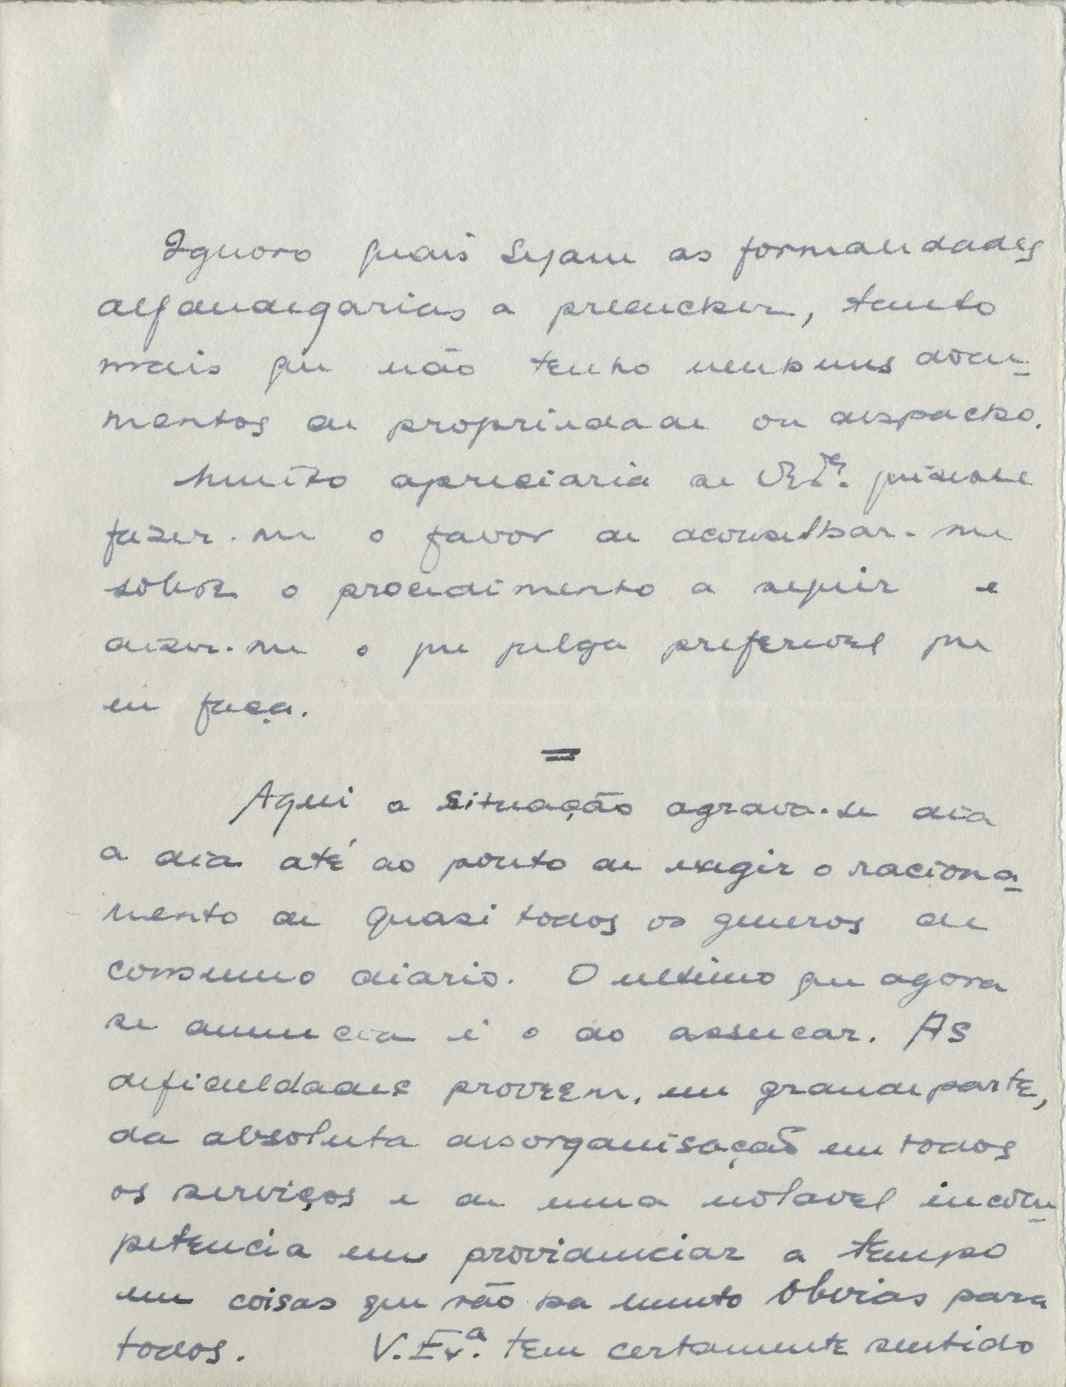 Ignoro quais sejam as formalidades
alfandegarias a preencher, tanto
mais que não tenho nenhuns docu-
mentos de propriedade ou despacho.
Muito apreciaria se V. Ex.ª quizesse
fazer-me o favor de aconselhar-me
sobre o procedimento a seguir e
dizer-me o que julga preferivel que
eu faça.
=
Aqui a situação agrava-se dia
a dia até ao ponto de exigir o raciona-
mento de quasi todos os generos de
consumo diario. O ultimo que agora
se anuncia é o do assucar. As
dificuldades proveem, em grande parte,
da absoluta desorganisação em todos
os serviços e de uma notavel incom-
petencia em providenciar a tempo
em coisas que são ha muito obvias para
todos. V. Ex.ª tem certamente sentido